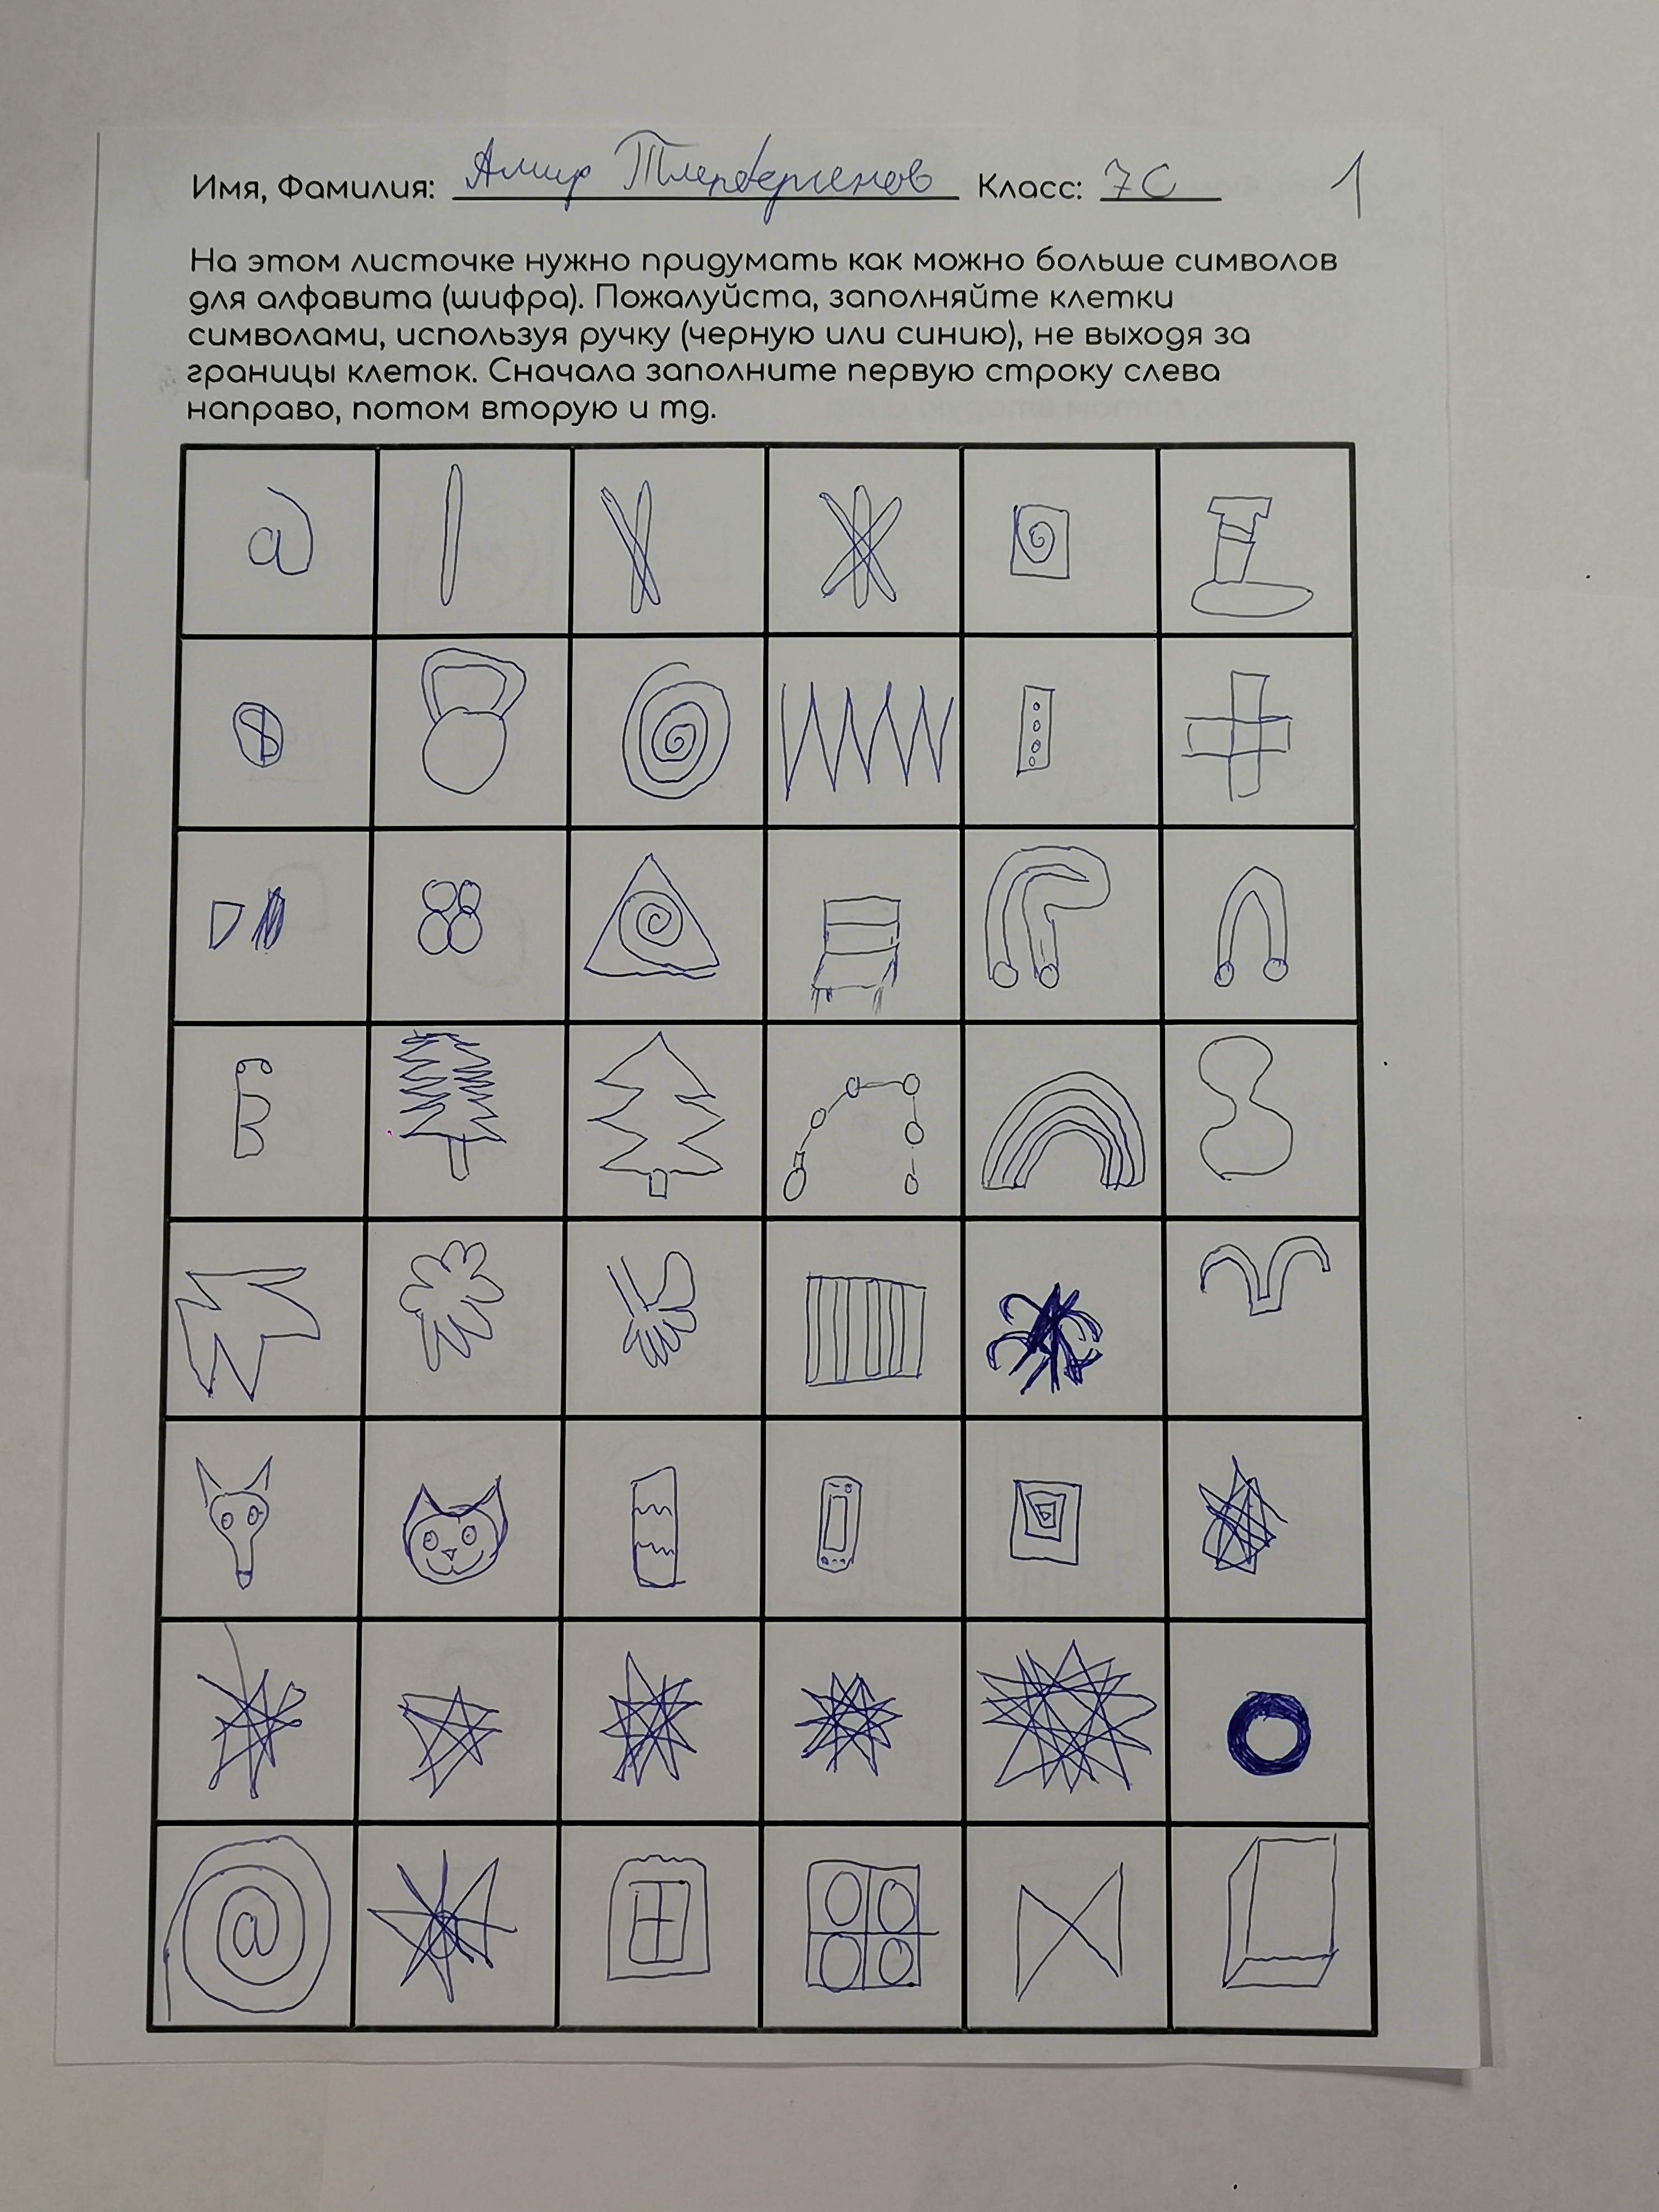 Имя, Фамилия: Амир Тлепбергенов Класс: 7С 1
На этом листочке нужно придумать как можно больше символов
для алфавита (шифра). Пожалуйста, заполняйте клетки
символами, используя ручку (черную или синию), не выходя за
границы клеток. Сначала заполните первую строку слева
направо, потом вторую и тд.